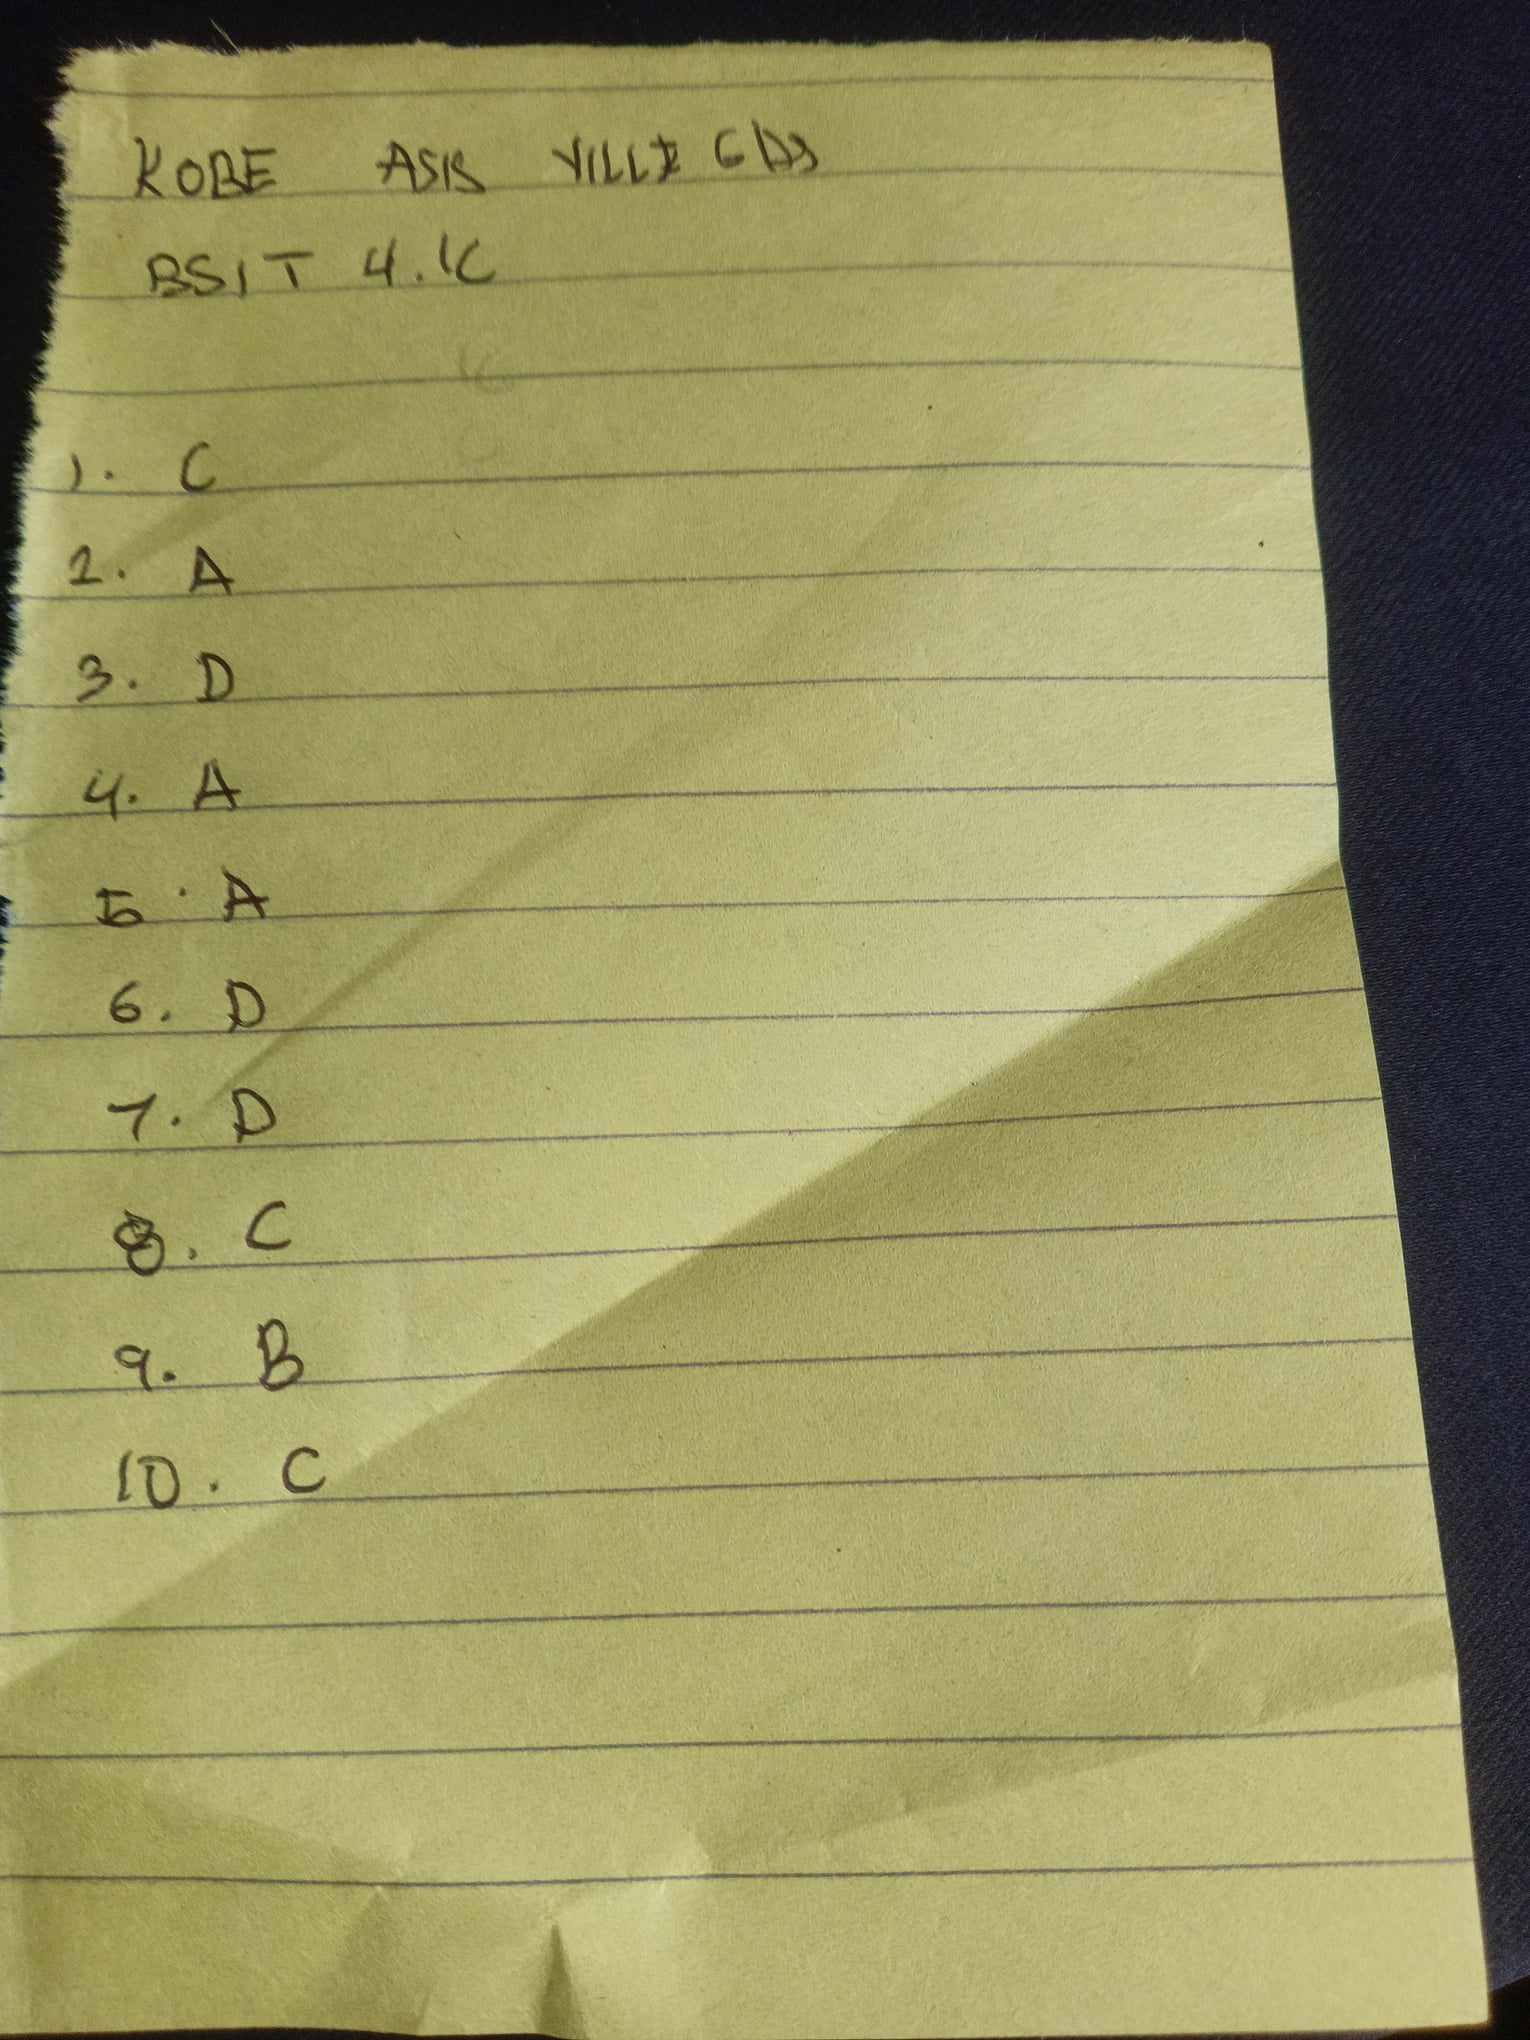 KOBE ASIS VILLEGAS
BSIT 4.1C
1. C
2. A
3. D
4. A
5. A
6. D
7. D
8. C
9. B
10. C